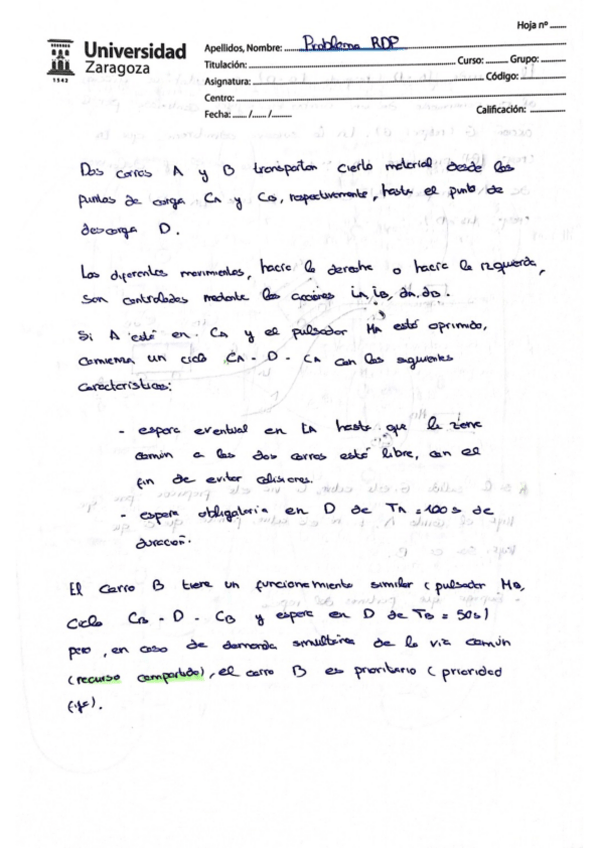 Hoja nº
Universidad
Zaragoza
1542
Apellidos, Nombre: Problema RDP
Titulación: Curso: Grupo:
Asignatura: Código:
Centro:
Fecha: / / Calificación:
Dos carros A y B transportan cierto material desde los
puntos de carga CA y CB, respectivamente, hasta el punto de
descarga D.
Los diferentes movimientos, hacia la derecha o hacia la izquierda,
son controlados mediante las acciones iA, iB, dA, dB.
Si A está en CA y el pulsador MA está oprimido,
comienza un ciclo CA - D - CA con las siguientes
características:
- espera eventual en EA hasta que la zona
común a los dos carros esté libre, con el
fin de evitar colisiones.
- espera obligatoria en D de TA = 100 s de
duración.
El carro B tiene un funcionamiento similar (pulsador MB,
ciclo CB - D - CB y espera en D de TB = 50s)
pero, en caso de demanda simultánea de la vía común
(recurso compartido), el carro B es prioritario (prioridad
fija).